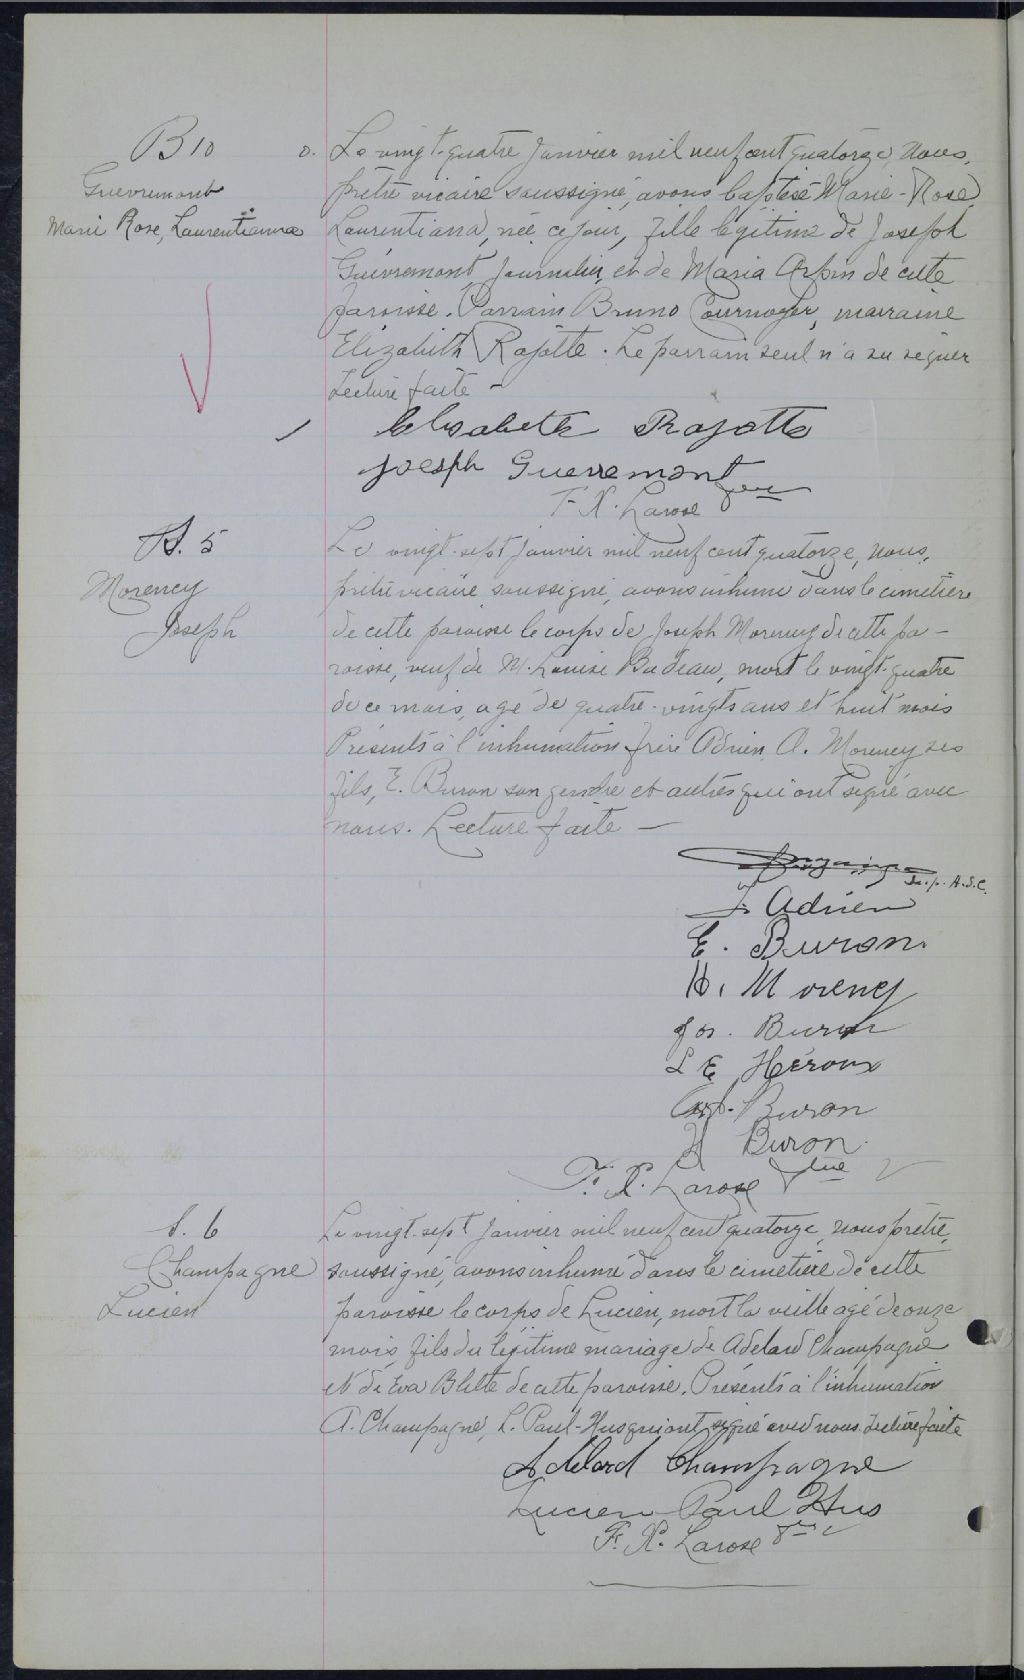 B 10
Guevremont
Marie Rose, Laurentianna
Le vingt-quatre Janvier mil neuf cent quatorze, nous,
prêtre vicaire soussigné, avons baptisé Marie-Rose,
Laurentiana, née ce jour, fille légitime de Joseph
Guévremont journalier, et de Maria Arpin de cette
paroisse. Parrain Bruno Cournoyer, marraine
Elizabeth Rajotte. Le parrain seul n'a su signer
Lecture faite -
Elisabeth Rajotte
Joseph Guevremont
F. X. Larose ptre
S. 5
Morency
Joseph
Le vingt-sept Janvier mil neuf cent quatorze, nous,
prêtre vicaire soussigné, avons inhumé dans le cimetière
de cette paroisse le corps de Joseph Morency de cette pa-
roisse, veuf de M. Louise Budeau, mort le vingt-quatre
de ce mois, agé de quatre-vingts ans et huit mois
Présents à l'inhumation frère Adrien, A. Morency ses
fils, E. Buron son gendre et autres qui ont signé avec
nous. Lecture faite —
F. Adrien
E. Buron.
H. Morency
Jos. Buron
L E Héroux
Buron
H Buron.
F. X. Larose ptre
S. 6
Champagne
Lucien
Le vingt-sept Janvier mil neuf cent quatorze, nous prêtre,
soussigné, avons inhumé dans le cimetière de cette
paroisse le corps de Lucien, mort la veille agé de onze
mois, fils du légitime mariage de Adelard Champagne
et de Eva Blette de cette paroisse. Présents à l'inhumation
A. Champagne, L. Paul-Hus qui ont signé avec nous. Lecture faite
Adelard Champagne
Lucien Paul Hus
F. X. Larose Ptre